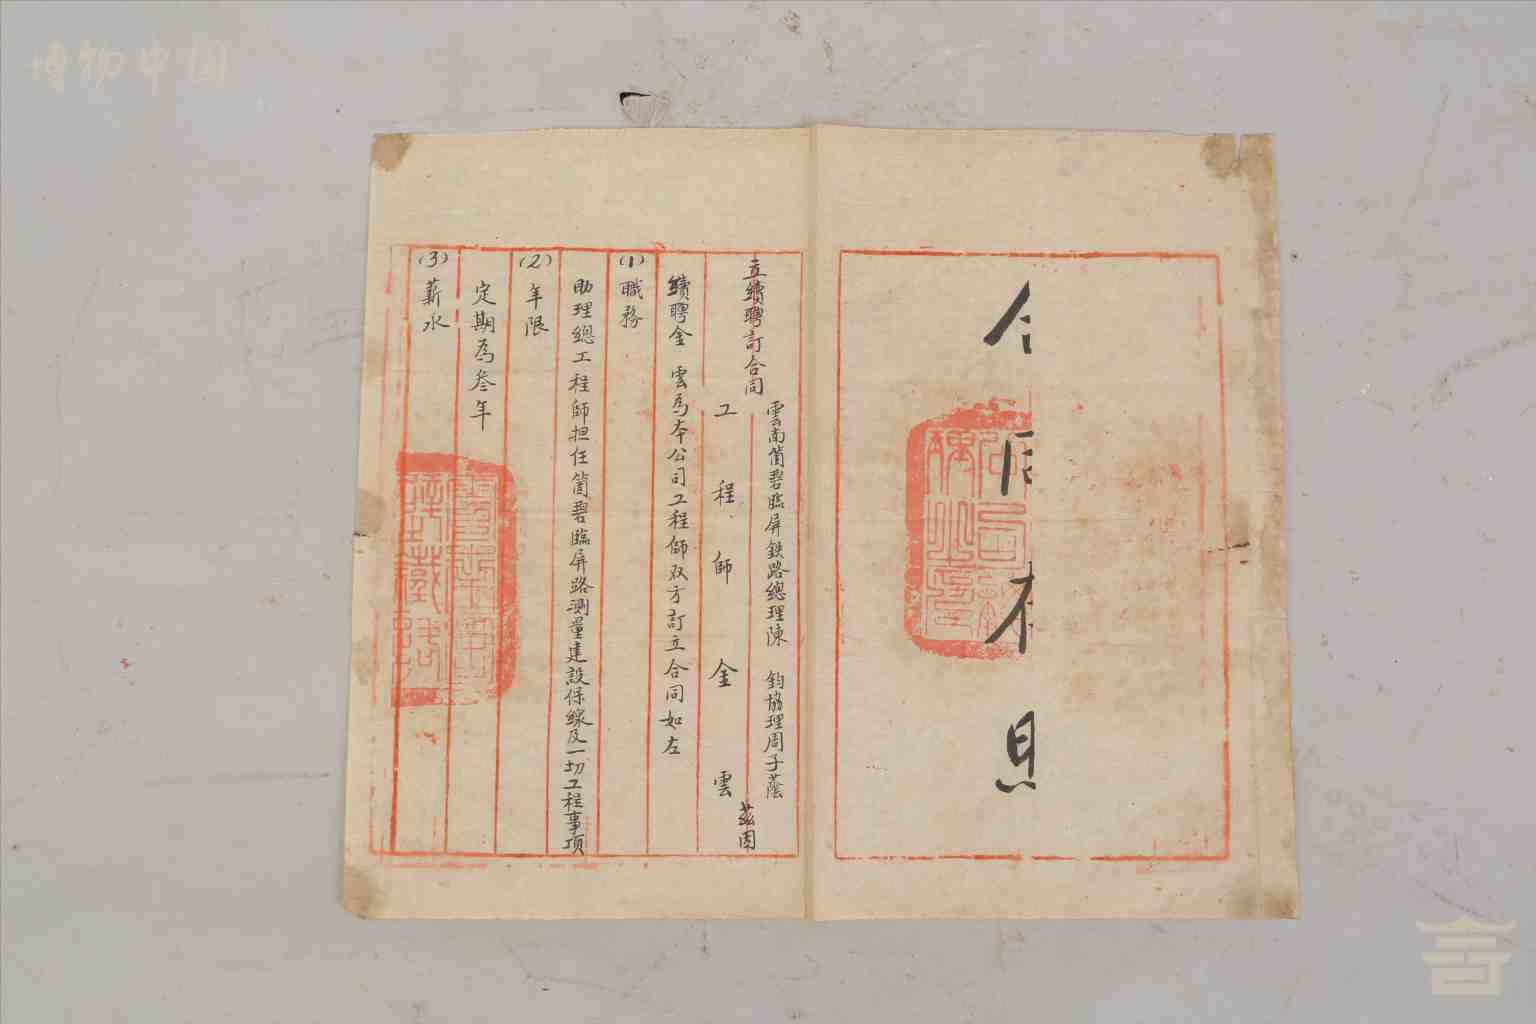 博物中国
立續聘訂合同
雲南箇碧臨屏鉄路總理陳 鈞協理周子蔭
工程師金雲
茲因
續聘金 雲為本公司工程師双方訂立合同如左
(1)職務
助理總工程師担任箇碧臨屏路測量建設保線及一切工程事項
(2)年限
定期為叁年
(3)薪水